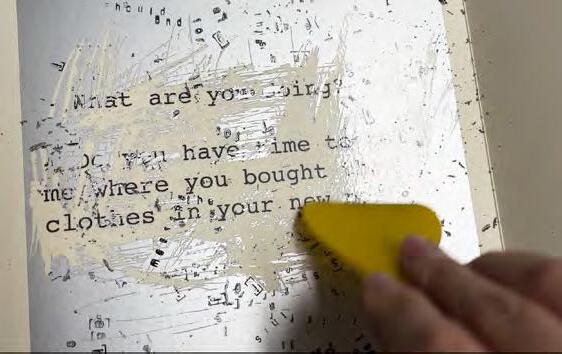 What are you doing?
Do you have time to
me where you bought
clothes in your new